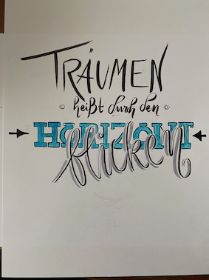 TRÄUMEN
heißt durch den
HORIZONT
blicken